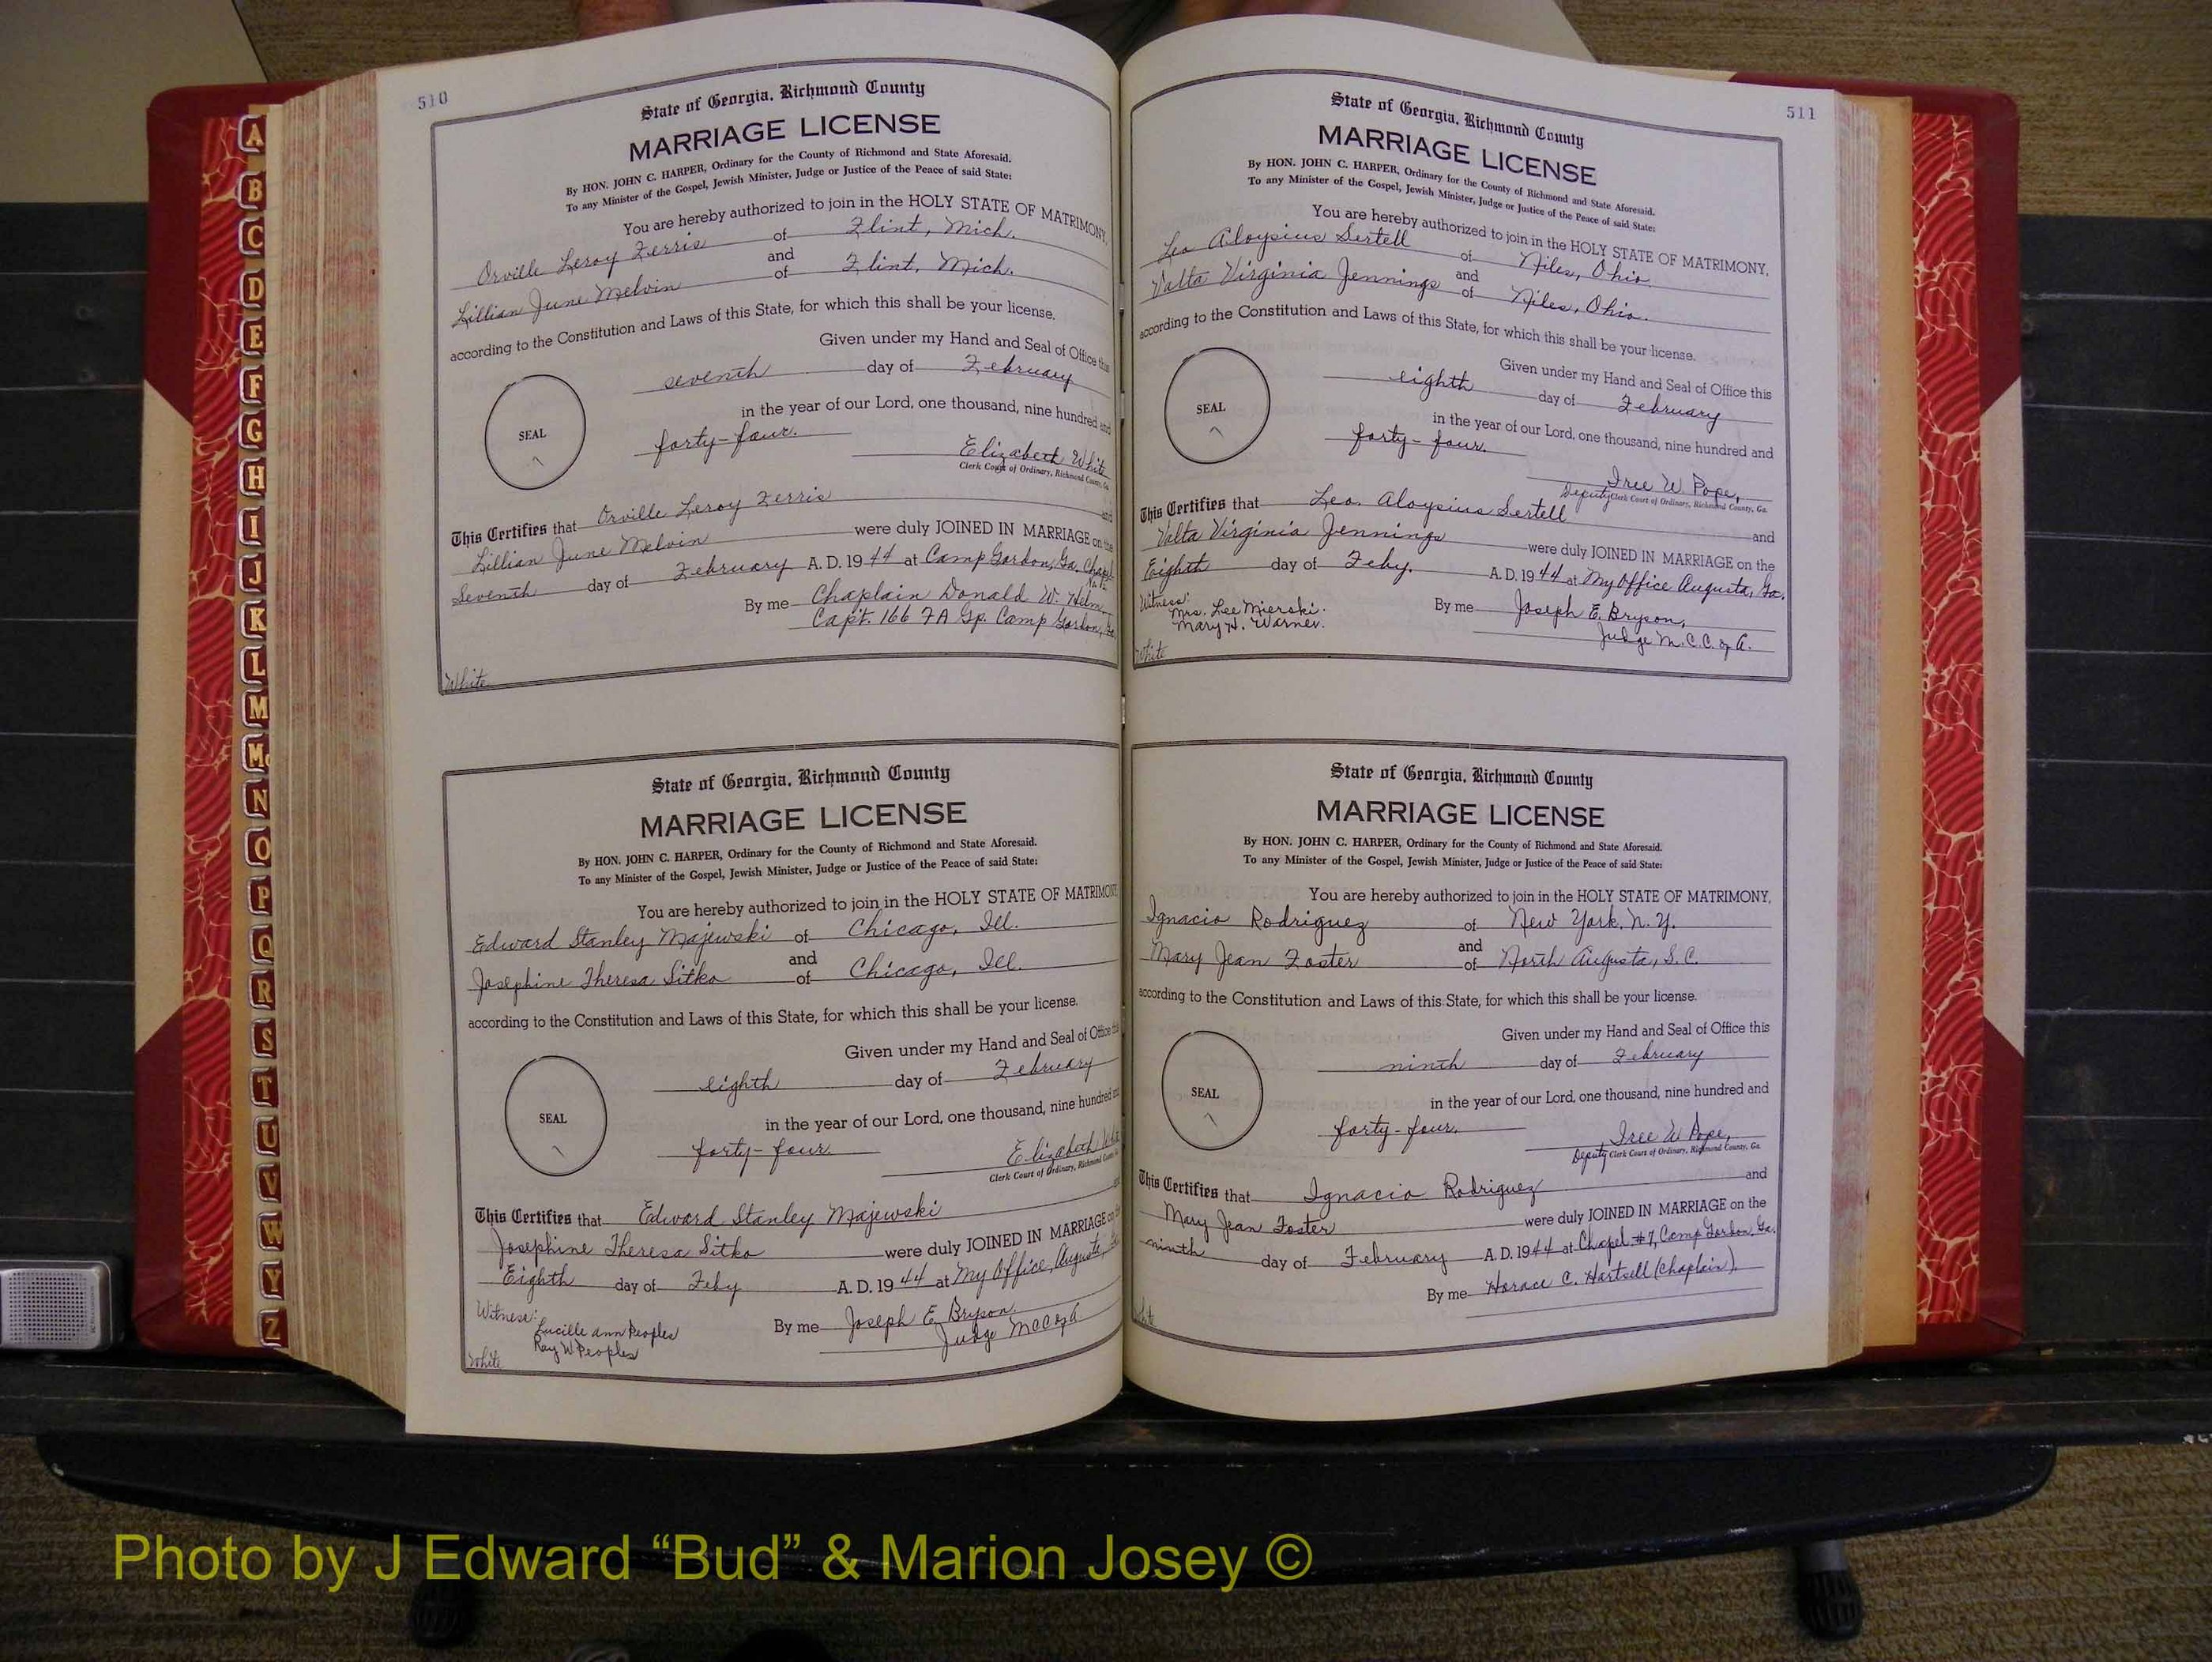 510
State of Georgia, Richmond County
MARRIAGE LICENSE
By HON. JOHN C. HARPER, Ordinary for the County of Richmond and State Aforesaid.
To any Minister of the Gospel, Jewish Minister, Judge or Justice of the Peace of said State:
You are hereby authorized to join in the HOLY STATE OF MATRIMONY,
Orville Leroy Ferris of Flint, Mich.
and
Lillian June Melvin of Flint, Mich.
according to the Constitution and Laws of this State, for which this shall be your license.
Given under my Hand and Seal of Office this
seventh day of February
in the year of our Lord, one thousand, nine hundred and
SEAL
forty-four.
Elizabeth White
Clerk Court of Ordinary, Richmond County, Ga.
This Certifies that Orville Leroy Ferris and
Lillian June Melvin were duly JOINED IN MARRIAGE on the
Seventh day of February A. D. 1944 at Camp Gordon, Ga.
By me Chaplain Donald W. Helm
Capt. 166 FA Gp. Camp Gordon, Ga.
White
State of Georgia, Richmond County
MARRIAGE LICENSE
By HON. JOHN C. HARPER, Ordinary for the County of Richmond and State Aforesaid.
To any Minister of the Gospel, Jewish Minister, Judge or Justice of the Peace of said State:
You are hereby authorized to join in the HOLY STATE OF MATRIMONY
Edward Stanley Majewski of Chicago, Ill.
and
Josephine Theresa Sitko of Chicago, Ill.
according to the Constitution and Laws of this State, for which this shall be your license.
Given under my Hand and Seal of Office this
eighth day of February
in the year of our Lord, one thousand, nine hundred and
SEAL
forty-four.
Elizabeth White
Clerk Court of Ordinary, Richmond County
This Certifies that Edward Stanley Majewski and
Josephine Theresa Sitko were duly JOINED IN MARRIAGE on the
Eighth day of Feby A. D. 1944 at My Office, Augusta, Ga
Witness:
Lucille Ann Peoples
Ray W Peoples
By me Joseph E. Bryson
Judge MCC of A
White
511
State of Georgia, Richmond County
MARRIAGE LICENSE
By HON. JOHN C. HARPER, Ordinary for the County of Richmond and State Aforesaid.
To any Minister of the Gospel, Jewish Minister, Judge or Justice of the Peace of said State:
You are hereby authorized to join in the HOLY STATE OF MATRIMONY,
Leo Aloysius Sertell of Niles, Ohio.
and
Valta Virginia Jennings of Niles, Ohio.
according to the Constitution and Laws of this State, for which this shall be your license.
Given under my Hand and Seal of Office this
eighth day of February
in the year of our Lord, one thousand, nine hundred and
SEAL
forty-four.
Iree W. Pope,
Deputy Clerk Court of Ordinary, Richmond County, Ga.
This Certifies that Leo. Aloysius Sertell and
Valta Virginia Jennings were duly JOINED IN MARRIAGE on the
Eighth day of Feby. A. D. 1944 at My Office Augusta, Ga.
Witness:
Mrs. Lee Mierski.
Mary H. Warner.
By me Joseph E. Bryson,
Judge M.C.C. of A.
White
State of Georgia, Richmond County
MARRIAGE LICENSE
By HON. JOHN C. HARPER, Ordinary for the County of Richmond and State Aforesaid.
To any Minister of the Gospel, Jewish Minister, Judge or Justice of the Peace of said State:
You are hereby authorized to join in the HOLY STATE OF MATRIMONY,
Ignacio Rodriguez of New York, N.Y.
and
Mary Jean Foster of North Augusta, S.C.
according to the Constitution and Laws of this State, for which this shall be your license.
Given under my Hand and Seal of Office this
ninth day of February
in the year of our Lord, one thousand, nine hundred and
SEAL
forty-four.
Iree W Pope,
Deputy Clerk Court of Ordinary, Richmond County, Ga.
This Certifies that Ignacio Rodriguez and
Mary Jean Foster were duly JOINED IN MARRIAGE on the
ninth day of February A. D. 1944 at Chapel #7, Camp Gordon, Ga.
By me Horace C. Hartsell (Chaplain).
White
A
B
C
D
E
F
G
H
I
J
K
L
M
Mc
N
O
P
Q
R
S
T
U
V
W
Y
Z
Photo by J Edward “Bud” & Marion Josey ©